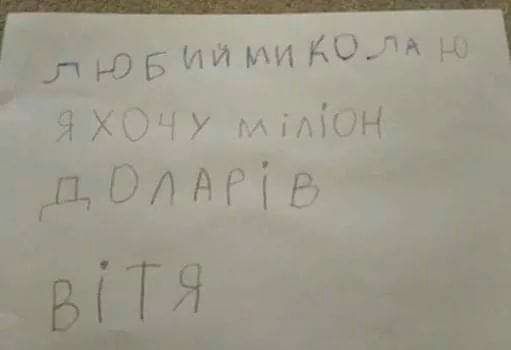 ЛЮБИЙ МИКОЛАЮ
Я ХОЧУ МІЛІОН
ДОЛАРІВ
ВІТЯ